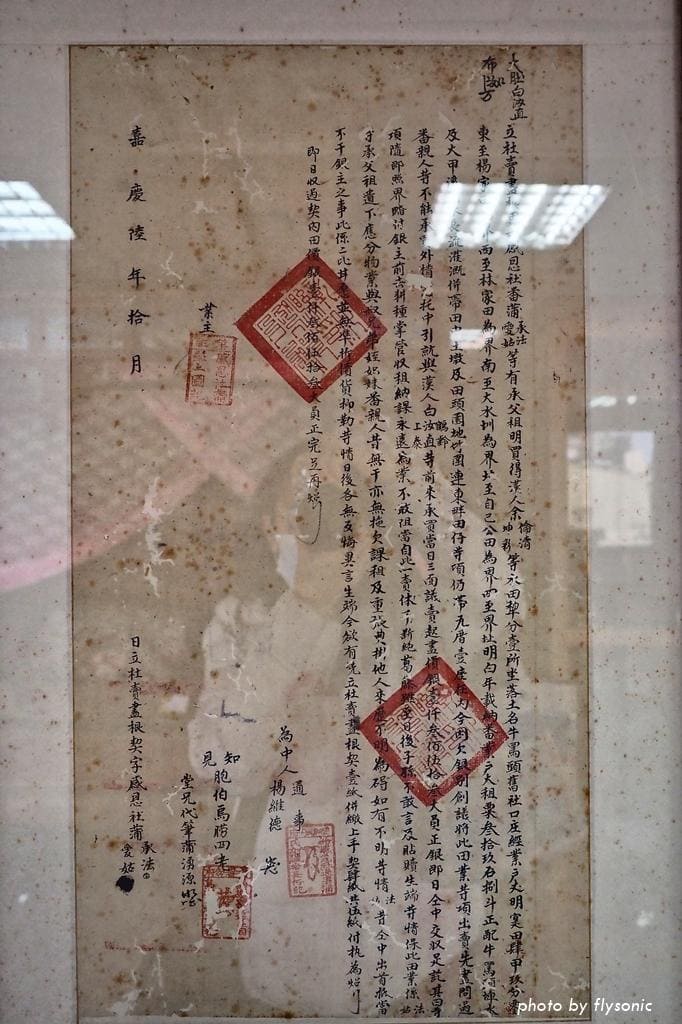 大肚白汝直
如
布 方
立杜賣盡根契字感恩社番蒲 承法 愛姑 等有承父祖明買得漢人余 倫濟 坤彩 等永田犁分壹所坐落土名牛罵頭舊社口庄經業戶丈明實田肆甲玖分
東至楊家 界西至林家田為界南至大水圳為界北至自己公田為界四至界址明白年載納番業戶大租粟叁拾玖石捌斗正配牛罵頭埤水
及大甲溪 長流灌溉併帶田中土墩及田頭園地竹圍連東畔田仔等項仍帶瓦厝壹座在內今因欠銀別創議將此田業等項出賣先盡問過
番親人等不能承 外情 托中引就與漢人白汝直 等前來承買當日三面議賣起盡價銀壹仟叁佰伍拾叁大員正銀即日仝中交收足訖其
項隨即照界踏付銀主前去耕種掌管收租納課永遠為業不敢阻當自此一賣休 斷絕葛 日後子孫不敢言及貼贖生端等情保此田業係
承父祖遺下應分物業與叔兄弟姪姊妹番親人等無干亦無拖欠課租及重張典掛他人來歷不明為碍如有不明等情 等仝中出首抵當
不干銀主之事此係二比甘愿並無準折債貨抑勒等情日後各無反悔異言生端今欲有憑立杜賣盡根契壹紙併繳上手契 紙共伍紙付執為炤
即日收過契內田價銀壹仟叁佰伍拾叁大員正完足再炤
業主
通事
為中人 楊維德
知
見 胞伯烏踏四老
堂兄代筆蒲湧源
嘉慶陸年拾月
日立杜賣盡根契字感恩社蒲 承法 愛姑
photo by flysonic